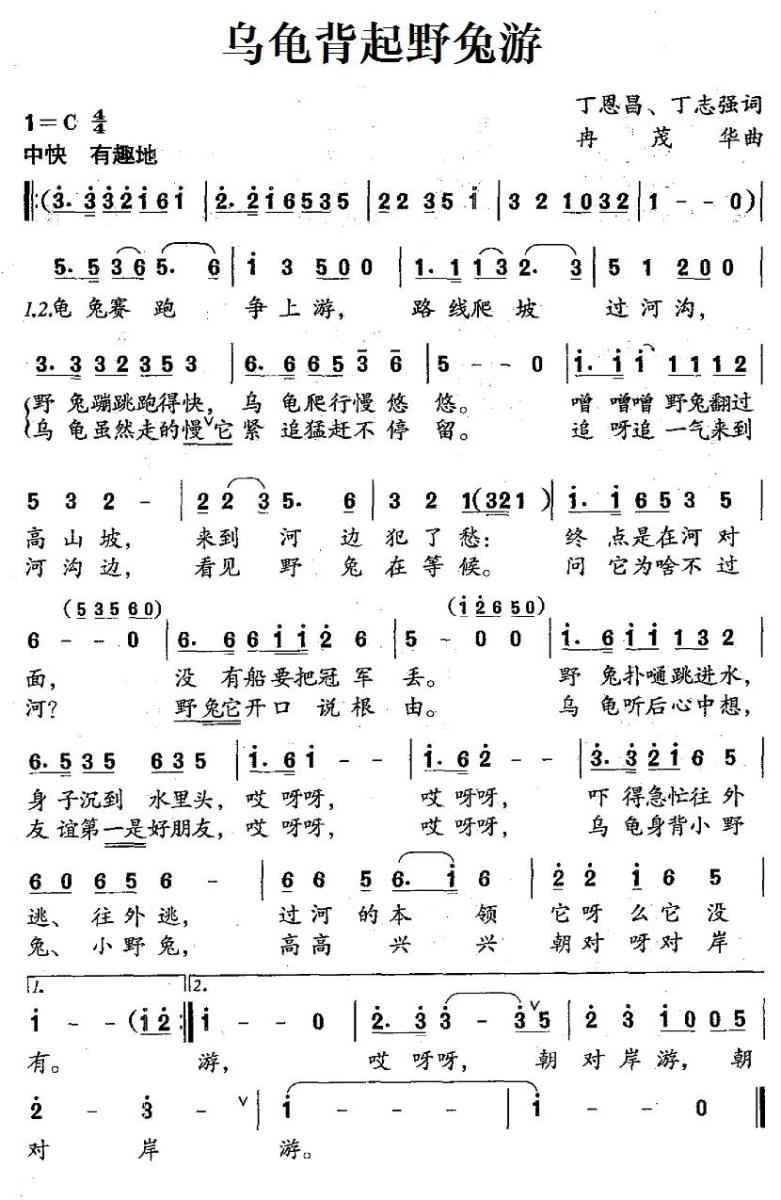 乌龟背起野兔游
丁恩昌、丁志强词
1=C 4/4
冉 茂 华曲
中快 有趣地
‖:(3. 3 3 2 1 6 1 | 2. 2 1 6 5 3 5 | 2 2 3 5 1 | 3 2 1 0 3 2 | 1 - - 0)|
5. 5 3 6 5. 6 | 1 3 5 0 0 | 1. 1 1 3 2. 3 | 5 1 2 0 0 |
1.2.龟 兔赛 跑 争 上 游, 路 线爬 坡 过 河 沟,
3. 3 3 3 2 3 5 3 | 6. 6 6 5 3 6 | 5 - - 0 | 1. 1 1 1 1 1 2 |
野 兔蹦跳跑得快, 乌 龟爬行慢 悠 悠。 噌 噌噌 野兔翻过
乌 龟虽然走的慢∨它 紧 追猛赶不 停 留。 追 呀追 一气来到
5 3 2 - | 2 2 3 5. 6 | 3 2 1(3 2 1 ) | 1. 1 6 5 3 5 |
高 山 坡, 来到 河 边 犯 了 愁: 终 点是在河 对
河 沟 边, 看见 野 兔 在 等 候。 问 它为啥不 过
(5 3 5 6 0) (1 2 6 5 0)
6 - - 0 | 6. 6 6 1 1 2 6 | 5 - 0 0 | 1. 6 1 1 1 3 2 |
面, 没 有船要把冠 军 丢。 野 兔扑嗵跳进水,
河? 野兔它开口 说 根 由。 乌 龟听后心中想,
6. 5 3 5 6 3 5 | 1. 6 1 - - | 1. 6 2 - - | 3. 3 2 1 6 5 |
身 子沉到 水里头, 哎 呀呀, 哎 呀呀, 吓 得急忙往 外
友 谊第一是好朋友, 哎 呀呀, 哎 呀呀, 乌 龟身背小 野
6 0 6 5 6 - | 6 6 5 6. 1 6 | 2 2 1 6 5 |
逃、 往外 逃, 过河 的本 领 它 呀 么它 没
兔、 小野 兔, 高高 兴 兴 朝 对 呀对 岸
1. 2.
1 - - (1 2 :‖ 1 - - 0 | 2. 3 3 - 3 5 | 2 3 1 0 0 5 |
有。 游, 哎 呀呀, 朝 对 岸 游, 朝
2 - 3 - ∨ | 1 - - - | 1 - - 0 ‖
对 岸 游。